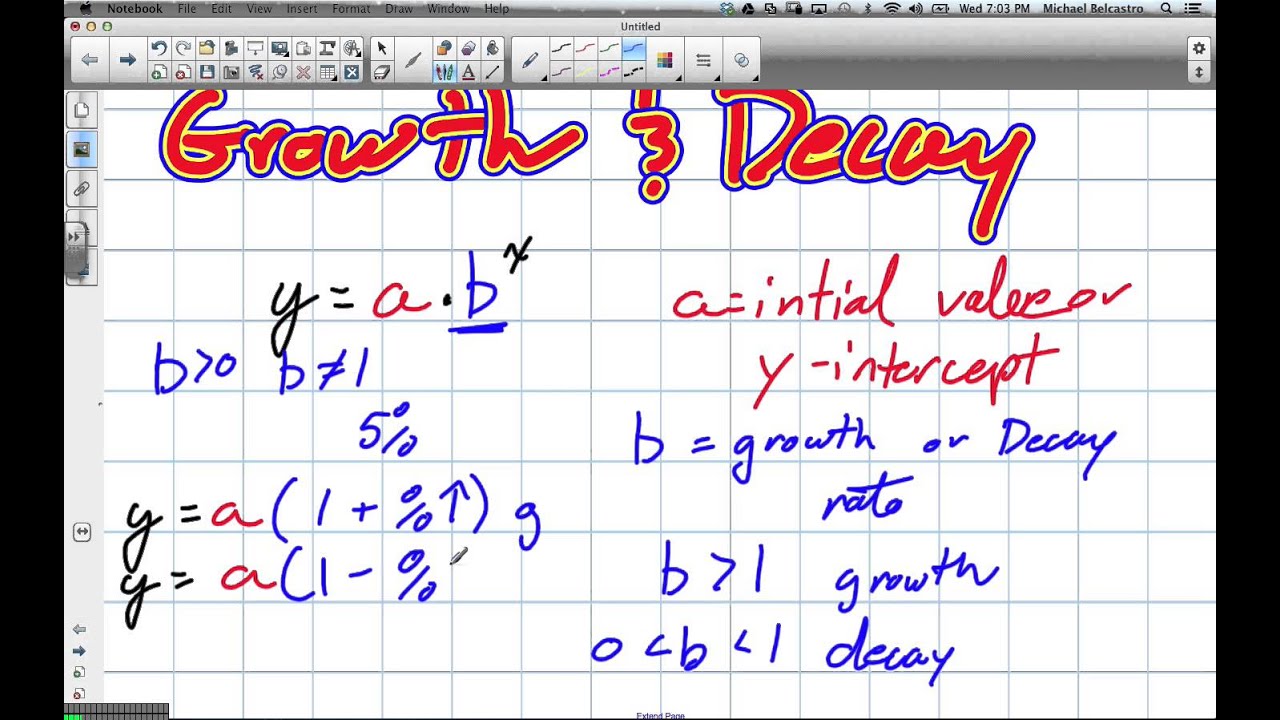 Notebook File Edit View Insert Format Draw Window Help Wed 7:03 PM Michael Belcastro
Untitled
Growth & Decay
y = a · b^x
a = intial value or
y-intercept
b>0 b≠1
5%
b = growth or Decay
rate
y = a(1 + %↑) g
y = a(1 - %
b > 1 growth
0 < b < 1 decay
Extend Page